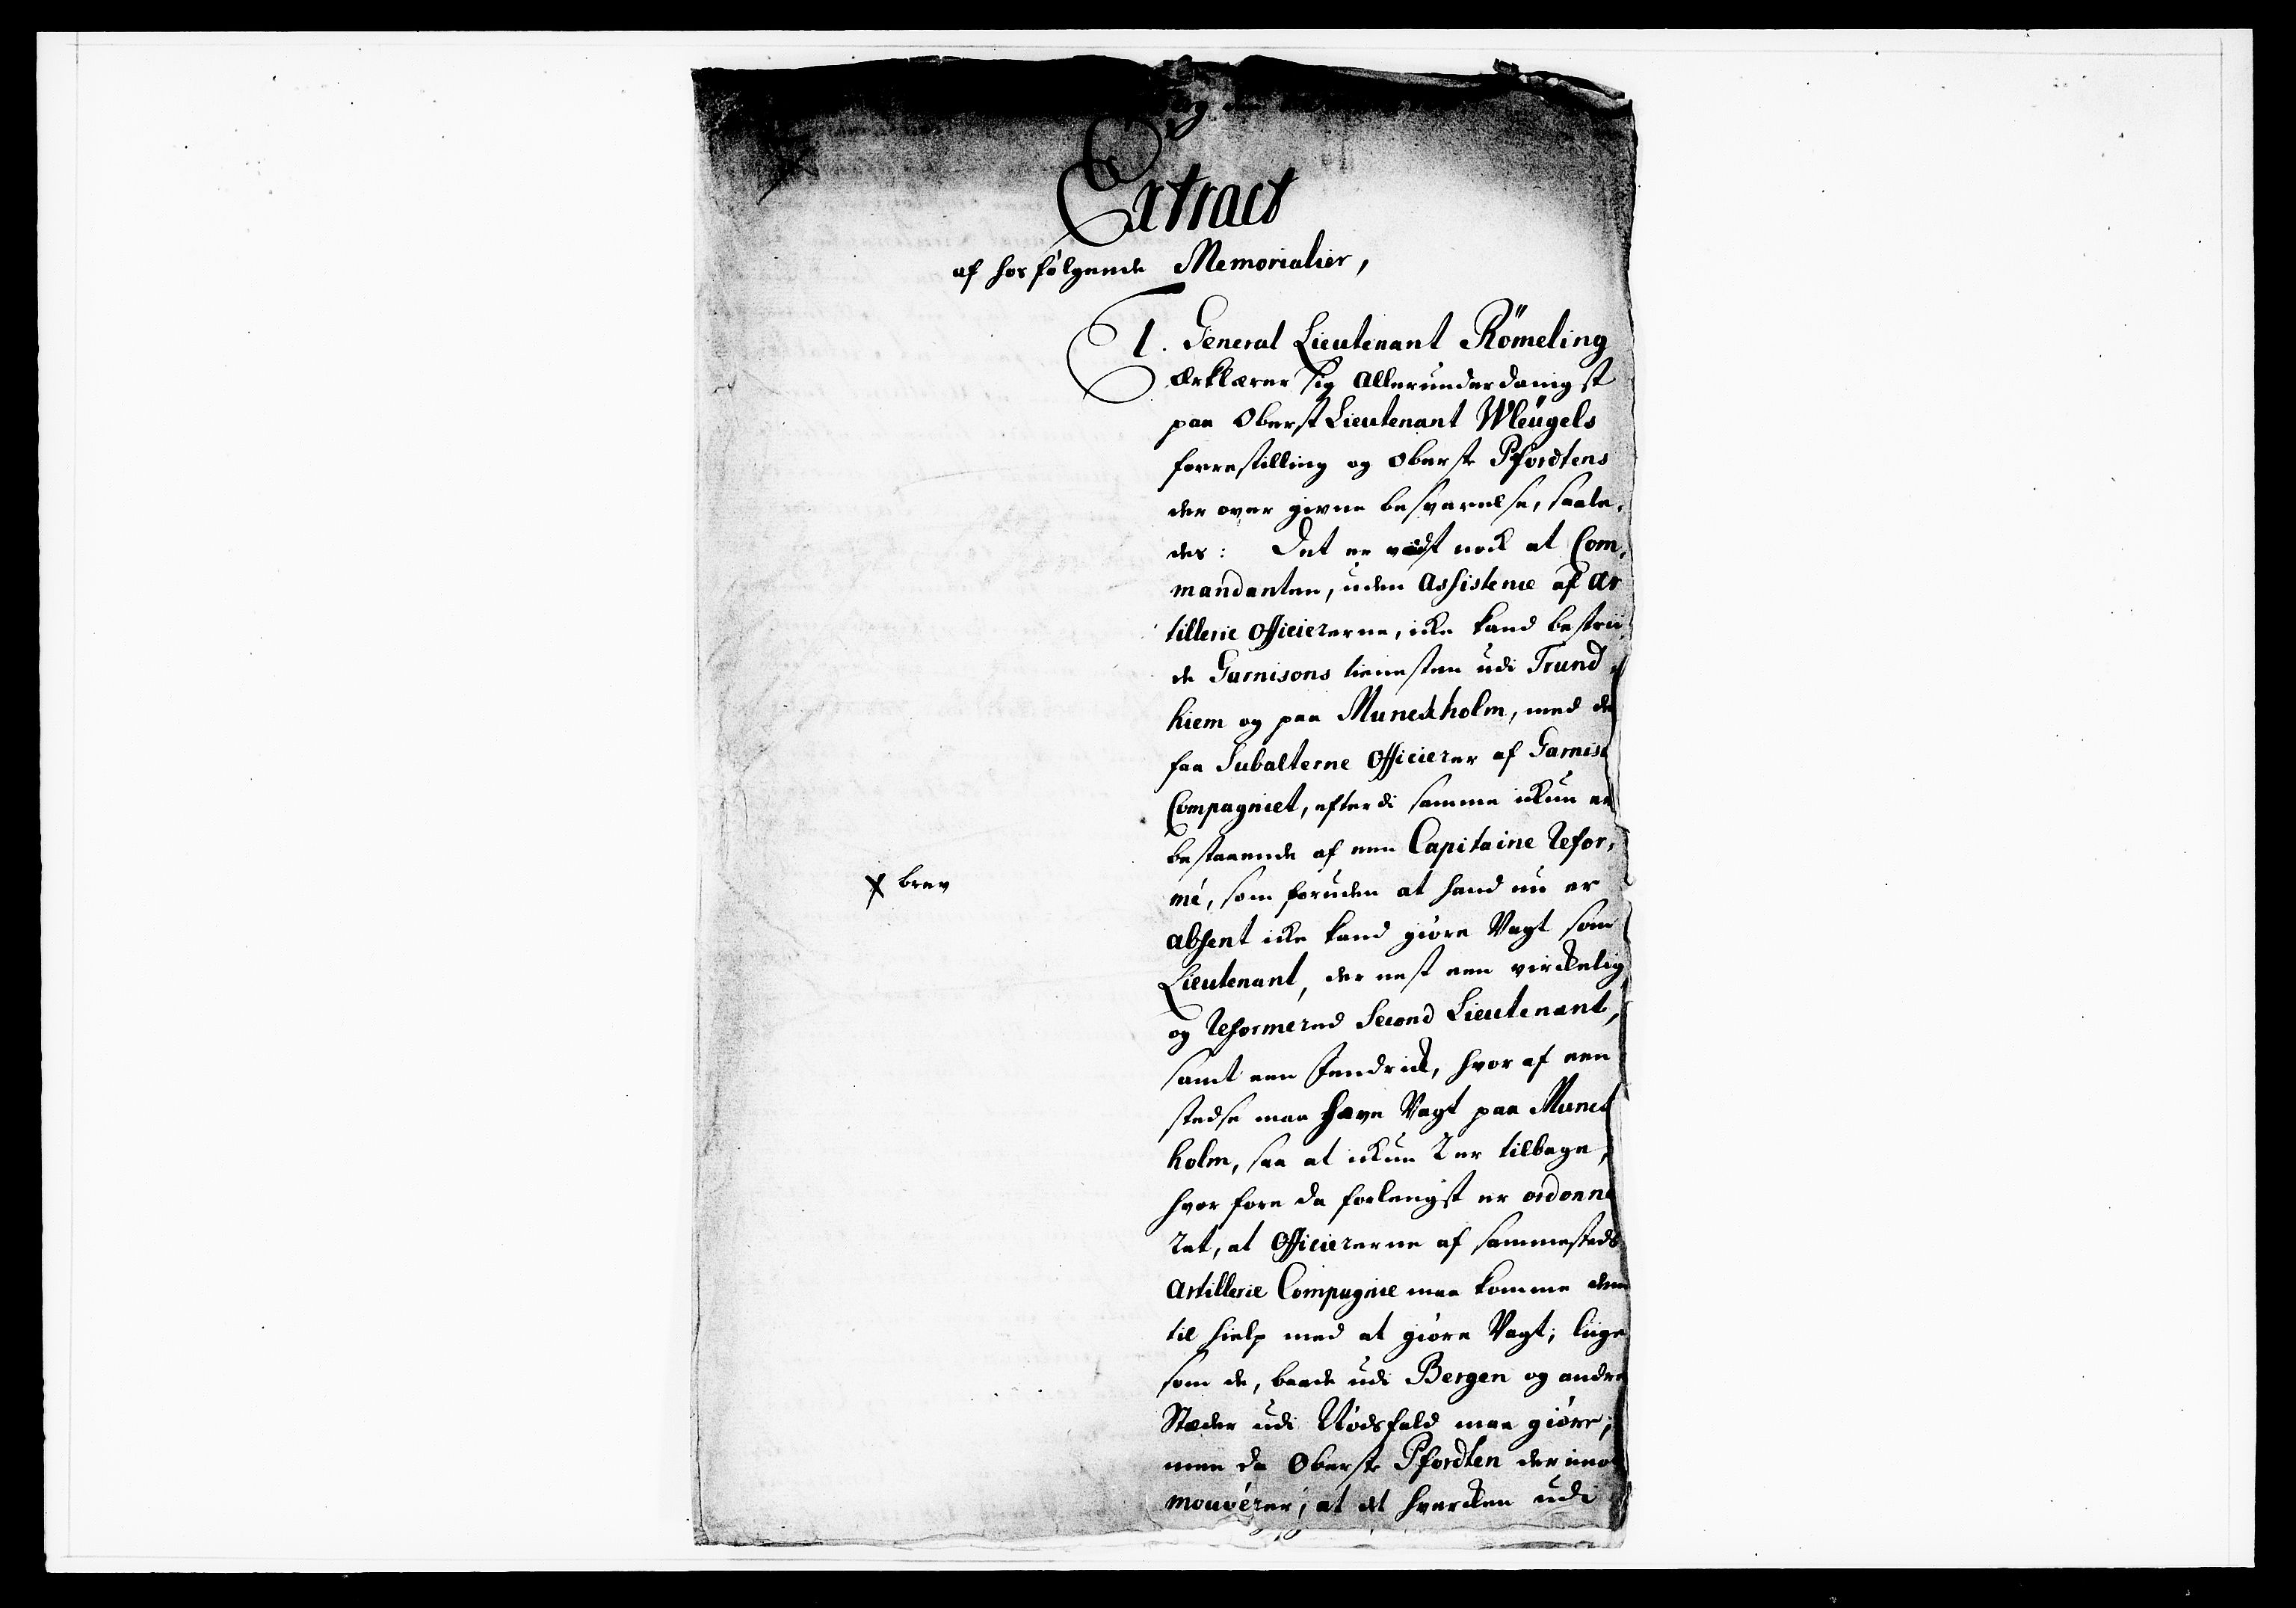 Extract
af hosfølgende Memorialier,
1. General Lieutenant Römeling
Erklærer sig allerunderdanigst
paa Oberst Lieutenant Wleügels
forrestilling og Oberste Pfordtens
der over givne besvarelse, saale,
des: Det er vist nock at Com,
mandanten, uden Assistence af Ar
tillerie Officiererne, icke kand bestrii,
de Garnisons tienesten udi Trund
hiem og paa Munckholm, med de
faa Subalterne Officierer af Garnis
Compagniet, efterdi samme ickun er
bestaaende af een Capitaine Refor,
x brev
mé, som foruden at hand nu er
absent icke kand giøre Vagt som
Lieutenant, der nest een virckelig
og Reformered Second Lieutenant,
samt een Fendrick, hvor af een
stedse maa have Vagt paa Munck
holm, saa at ickun 2 er tilbage,
hvor fore da forlengst er ordonne
ret, at Officiererne af sammesteds
Artillerie Compagnie maa komme dem
til hielp med at giøre Vagt; liige
som de, baade udi Bergen og andre
Stæder udi Nødsfald maa giøre;
men da Oberste Pfordten der imod
mouverer, at det hvercken udi